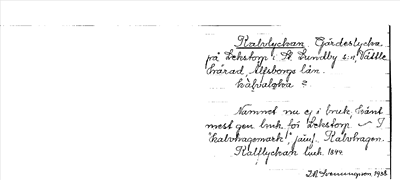 Kalvlyckan Gärdeslycka
på Ekstorp i St. Lundby s:n, Vättle
härad, Älfsborgs län.
Namnet nu ej i bruk, känt
mest gen. bruk. för Ekstorp
"Kalvhagemark", jämf. Kalvhagen.
Kalflyckan 1844
1938